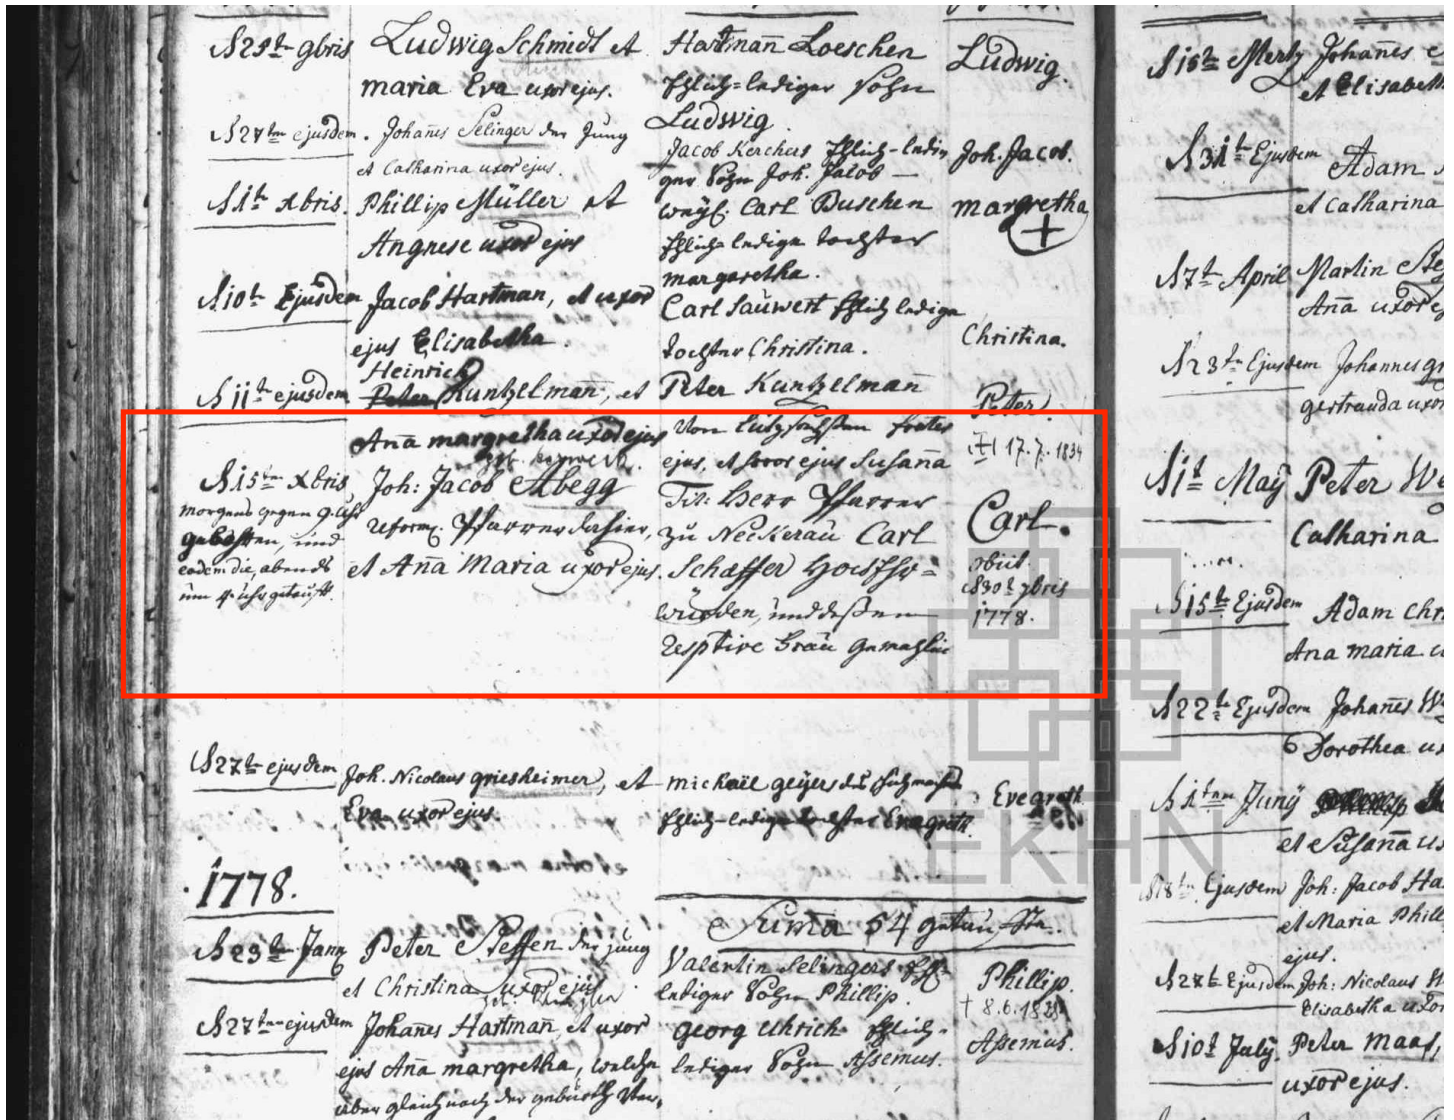 d 25t 9bris
Ludwig Schmidt et
maria Eva uxor ejus.
Hartman Loeschen
Ehlich-lediger Sohn
Ludwig
Ludwig.
d 27tn ejusdem.
Johanes Selinger der Jung
et Catharina uxor ejus.
Jacob Kerches Ehlich-ledi-
ger Sohn Joh. Jacob —
Joh. Jacob.
d 1t xbris.
Phillip Müller et
Angnese uxor ejus
weyl. Carl Buschen
Ehlich-ledige tochter
margaretha.
margretha
d 10t Ejusdem
Jacob Hartman, et uxor
ejus Elisabetha
Carl Sauwert Ehlich ledige
tochter Christina.
Christina.
d 11t ejusdem
Heinrich
Peter Kuntzelman, et
Ana margretha uxor ejus
Peter Kuntzelman
von
ejus, et soror ejus Susana
Peter.
17.7.1834
d 15tn Xbris
morgens gegen 9 Uhr
gebohren, und
eodem die, abends
um 4 uhr getauft
Joh: Jacob Abegg
reform. Pfarrer dahier,
et Ana Maria uxor ejus.
Tit: Herr Pfarrer
zu Neckerau Carl
Schaffer Hochehr=
würden, und deßen
resptive Frau Gemahlin
Carl.
obiit.
d 30t 7bris
1778.
d 27t ejusdem
Joh. Nicolaus griesheimer, et
Eva uxor ejus.
michael geyers des
Ehlich-ledige tochter Evagreth.
Evegreth
1778.
Suma 54 getaufte.
d 23t Jann
Peter Steffen der jung
et Christina uxor ejus
Valentin Selingers Ehl-
lediger Sohn Phillip.
Phillip.
† 8.6.1831
d 27tn ejusdem
Johanes Hartman, et uxor
ejus Ana margretha, welche
aber gleich nach der geburth
georg Uhrich Ehlich-
lediger Sohn Assemus.
Assemus.
d 15t Mertz
Johanes
et Elisabeth
d 31t Ejusdem
Adam
et Catharina
d 7t April
Martin
Ana uxor
d 23tn Ejusdem
Johannes
gertrauda uxor
d 1t May
Peter
Catharina
d 15t Ejusdem
Adam Chr
Ana maria
d 22t Ejusdem
Johanes
Dorothea
d 1tn Juny
et Susana
d 18t Ejusdem
Joh: Jacob Ha
et Maria Phill
ejus.
d 27t Ejusdem
Joh: Nicolaus
Elisabetha uxor
d 10t July.
Peter Maas,
uxor ejus.
EKHN